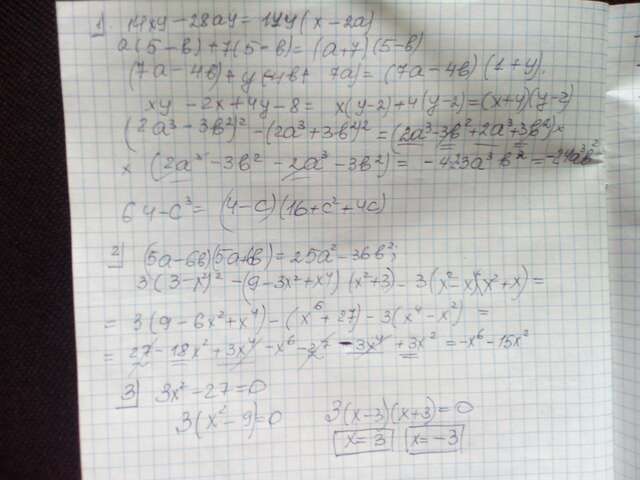 1) 14xy - 28ay = 14y(x - 2a)
a(5-b) + 7(5-b) = (a+7)(5-b)
(7a-4b) + y(-4b + 7a) = (7a-4b)(1+y).
xy - 2x + 4y - 8 = x(y-2) + 4(y-2) = (x+4)(y-2)
(2a³ - 3b²)² - (2a³ + 3b²)² = (2a³ - 3b² + 2a³ + 3b²) ×
× (2a³ - 3b² - 2a³ - 3b²) = -4·23a³b² = -24a³b²
64 - c³ = (4-c)(16 + c² + 4c)
2) (5a-6b)(5a+6b) = 25a² - 36b²;
3(3-x²)² - (9 - 3x² + x⁴)(x²+3) - 3(x²-x)(x²+x) =
= 3(9 - 6x² + x⁴) - (x⁶ + 27) - 3(x⁴ - x²) =
= 27 - 18x² + 3x⁴ - x⁶ - 27 - 3x⁴ + 3x² = -x⁶ - 15x²
3) 3x² - 27 = 0
3(x² - 9) = 0 3(x-3)(x+3) = 0
x = 3 x = -3